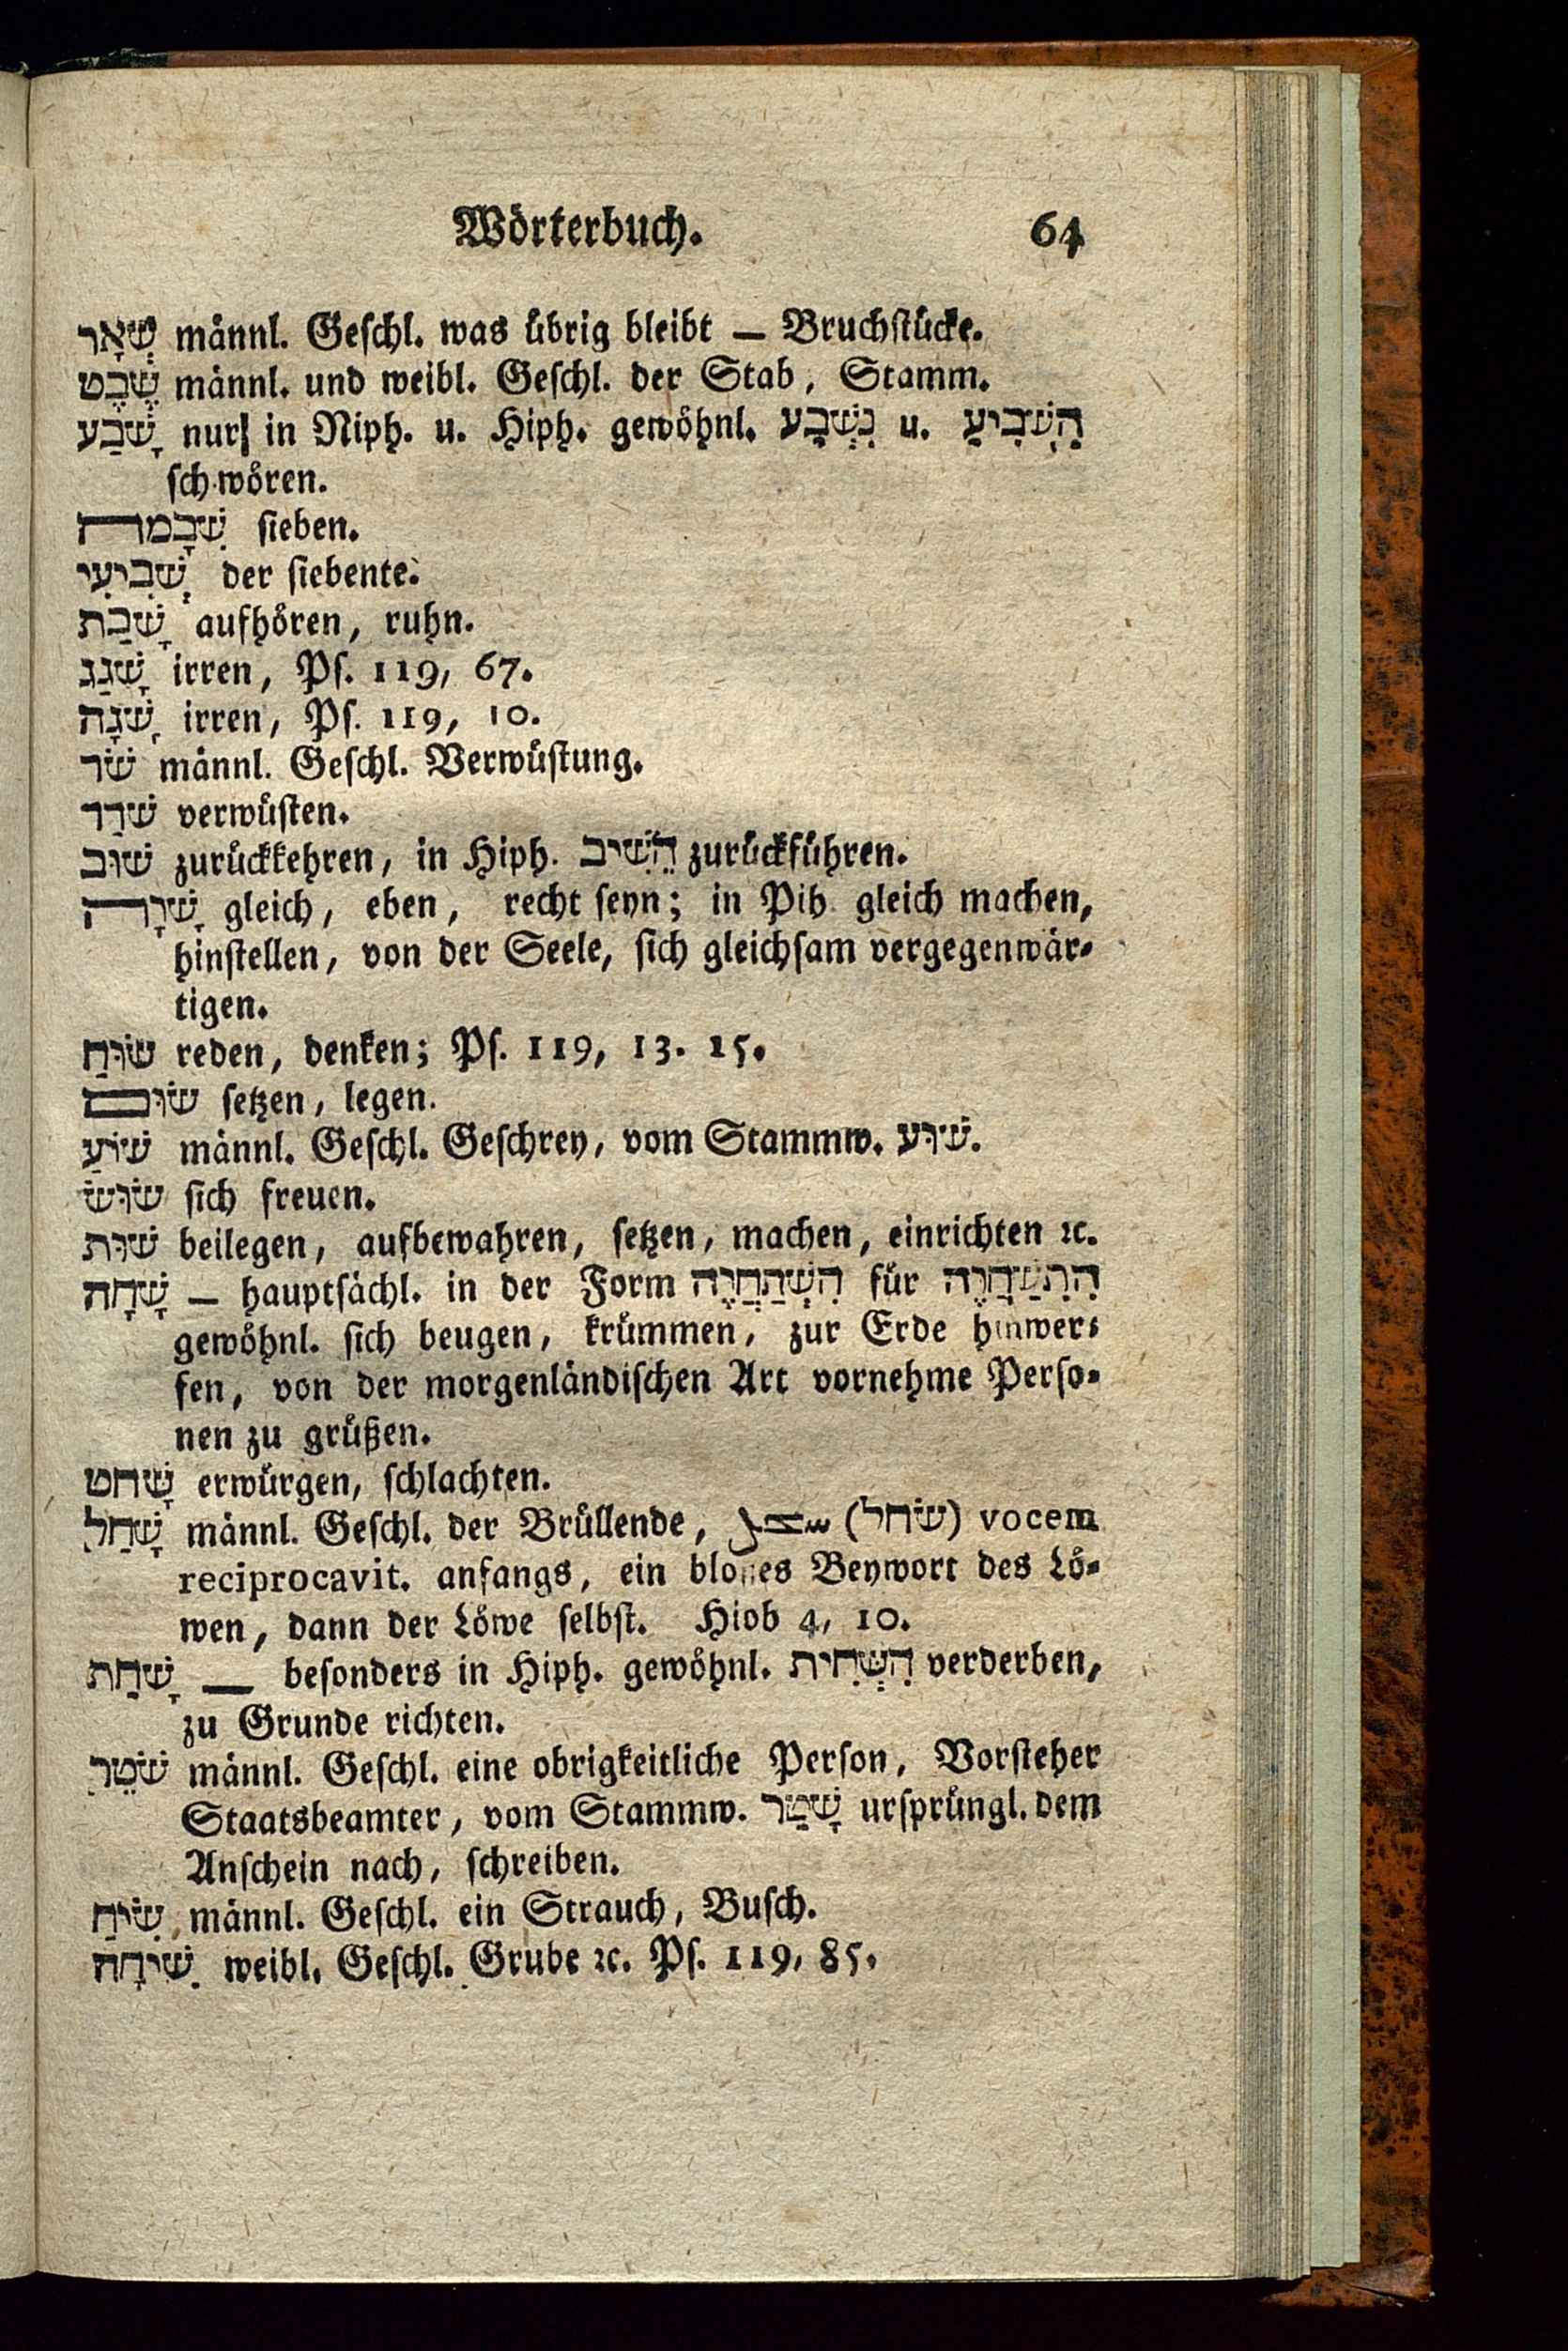 Wörterbuch. 64
שְׁאָר männl. Geſchl. was übrig bleibt — Bruchſtücke.
שֵׁבֶט männl. und weibl. Geſchl. der Stab, Stamm.
שָׁבַע nur in Niph. u. Hiph. gewöhnl. נִשְׁבָּע u. הִשְׁבִּיעַ
ſchwören.
ſieben.
שְׁבִיעִי der ſiebente.
שָׁבַת aufhören, ruhn.
שָׁגַג irren, Pſ. 119, 67.
שָׁגָה irren, Pſ. 119, 10.
männl. Geſchl. Verwüſtung.
verwüſten.
שׁוּב zurückkehren, in Hiph. הֵשִׁיב zurückführen.
שָׁוָה gleich, eben, recht ſeyn; in Pih. gleich machen,
hinſtellen, von der Seele, ſich gleichſam vergegenwär⸗
tigen.
שׂוּחַ reden, denken; Pſ. 119, 13. 15.
שׂוּם ſetzen, legen.
שׁוֹעַ männl. Geſchl. Geſchrey, vom Stammw. שׁוּע.
שׂוּשׂ ſich freuen.
שׁוּת beilegen, aufbewahren, ſetzen, machen, einrichten ꝛc.
שָׁחָה — hauptſächl. in der Form הִשְׁתַּחֲוֶה für הִתְשַׁחֲוֶה
gewöhnl. ſich beugen, krümmen, zur Erde hinwer⸗
fen, von der morgenländiſchen Art vornehme Perſo⸗
nen zu grüßen.
שָׁחט erwürgen, ſchlachten.
שָׁחַל männl. Geſchl. der Brüllende, (שׂחל) vocem
reciprocavit. anfangs, ein bloßes Beywort des Lö⸗
wen, dann der Löwe ſelbſt. Hiob 4, 10.
שָׁחַת — beſonders in Hiph. gewöhnl. הִשְׁחִית verderben,
zu Grunde richten.
שֹׁטֵר männl. Geſchl. eine obrigkeitliche Perſon, Vorſteher
Staatsbeamter, vom Stammw. שָׁטַר urſprüngl. dem
Anſchein nach, ſchreiben.
שִׂיחַ männl. Geſchl. ein Strauch, Buſch.
שִׁיחָה weibl. Geſchl. Grube ꝛc. Pſ. 119, 85.